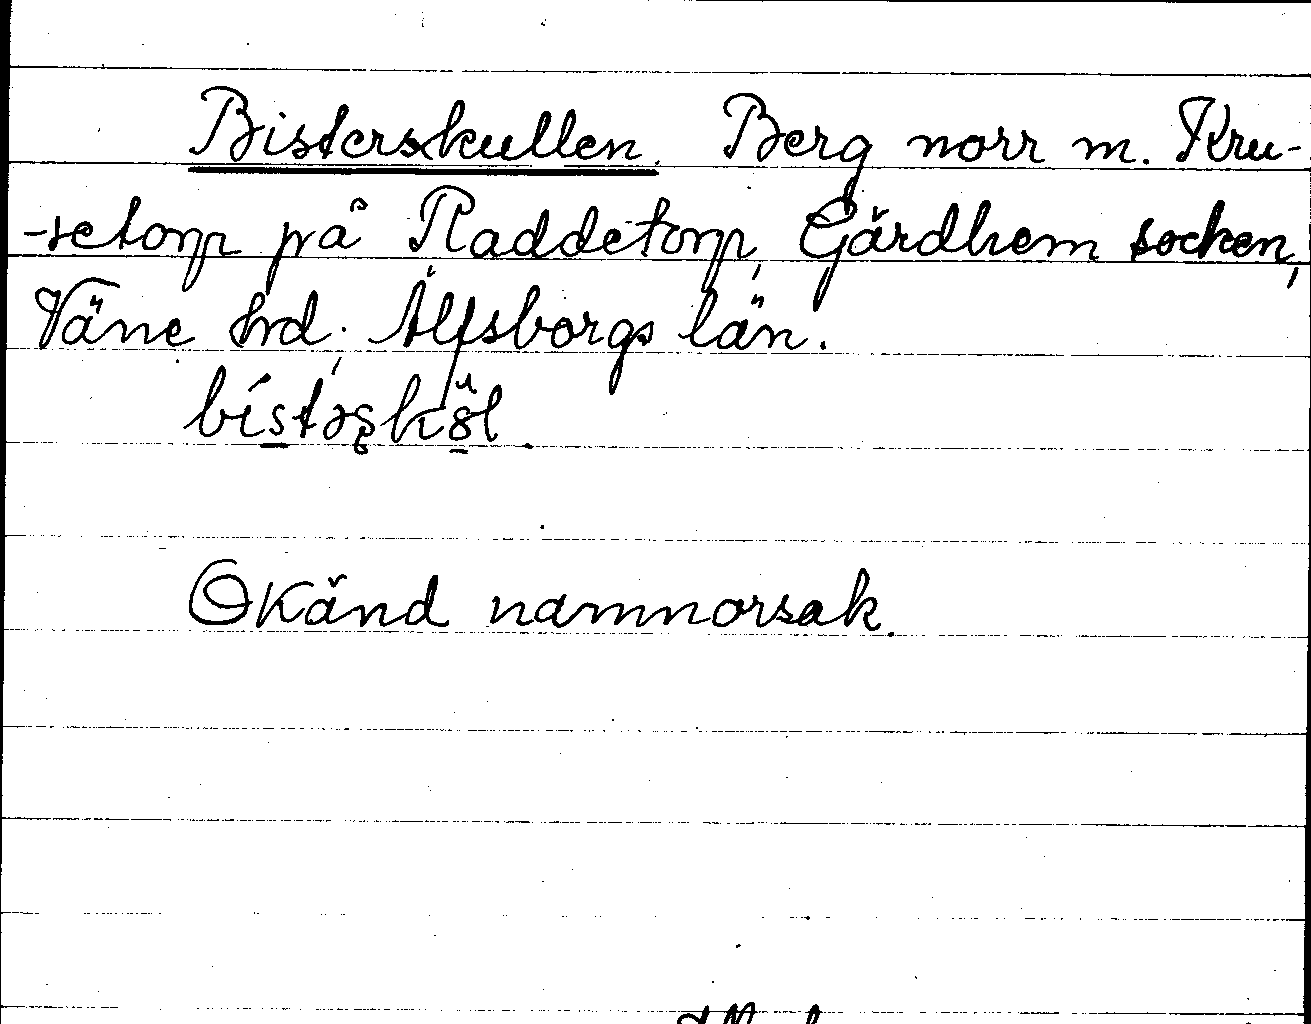 Bisterskullen. Berg norr m. Kru-
-setorp på Raddetorp, Gärdhem socken,
Väne hd. Älfsborgs län.
Okänd namnorsak.